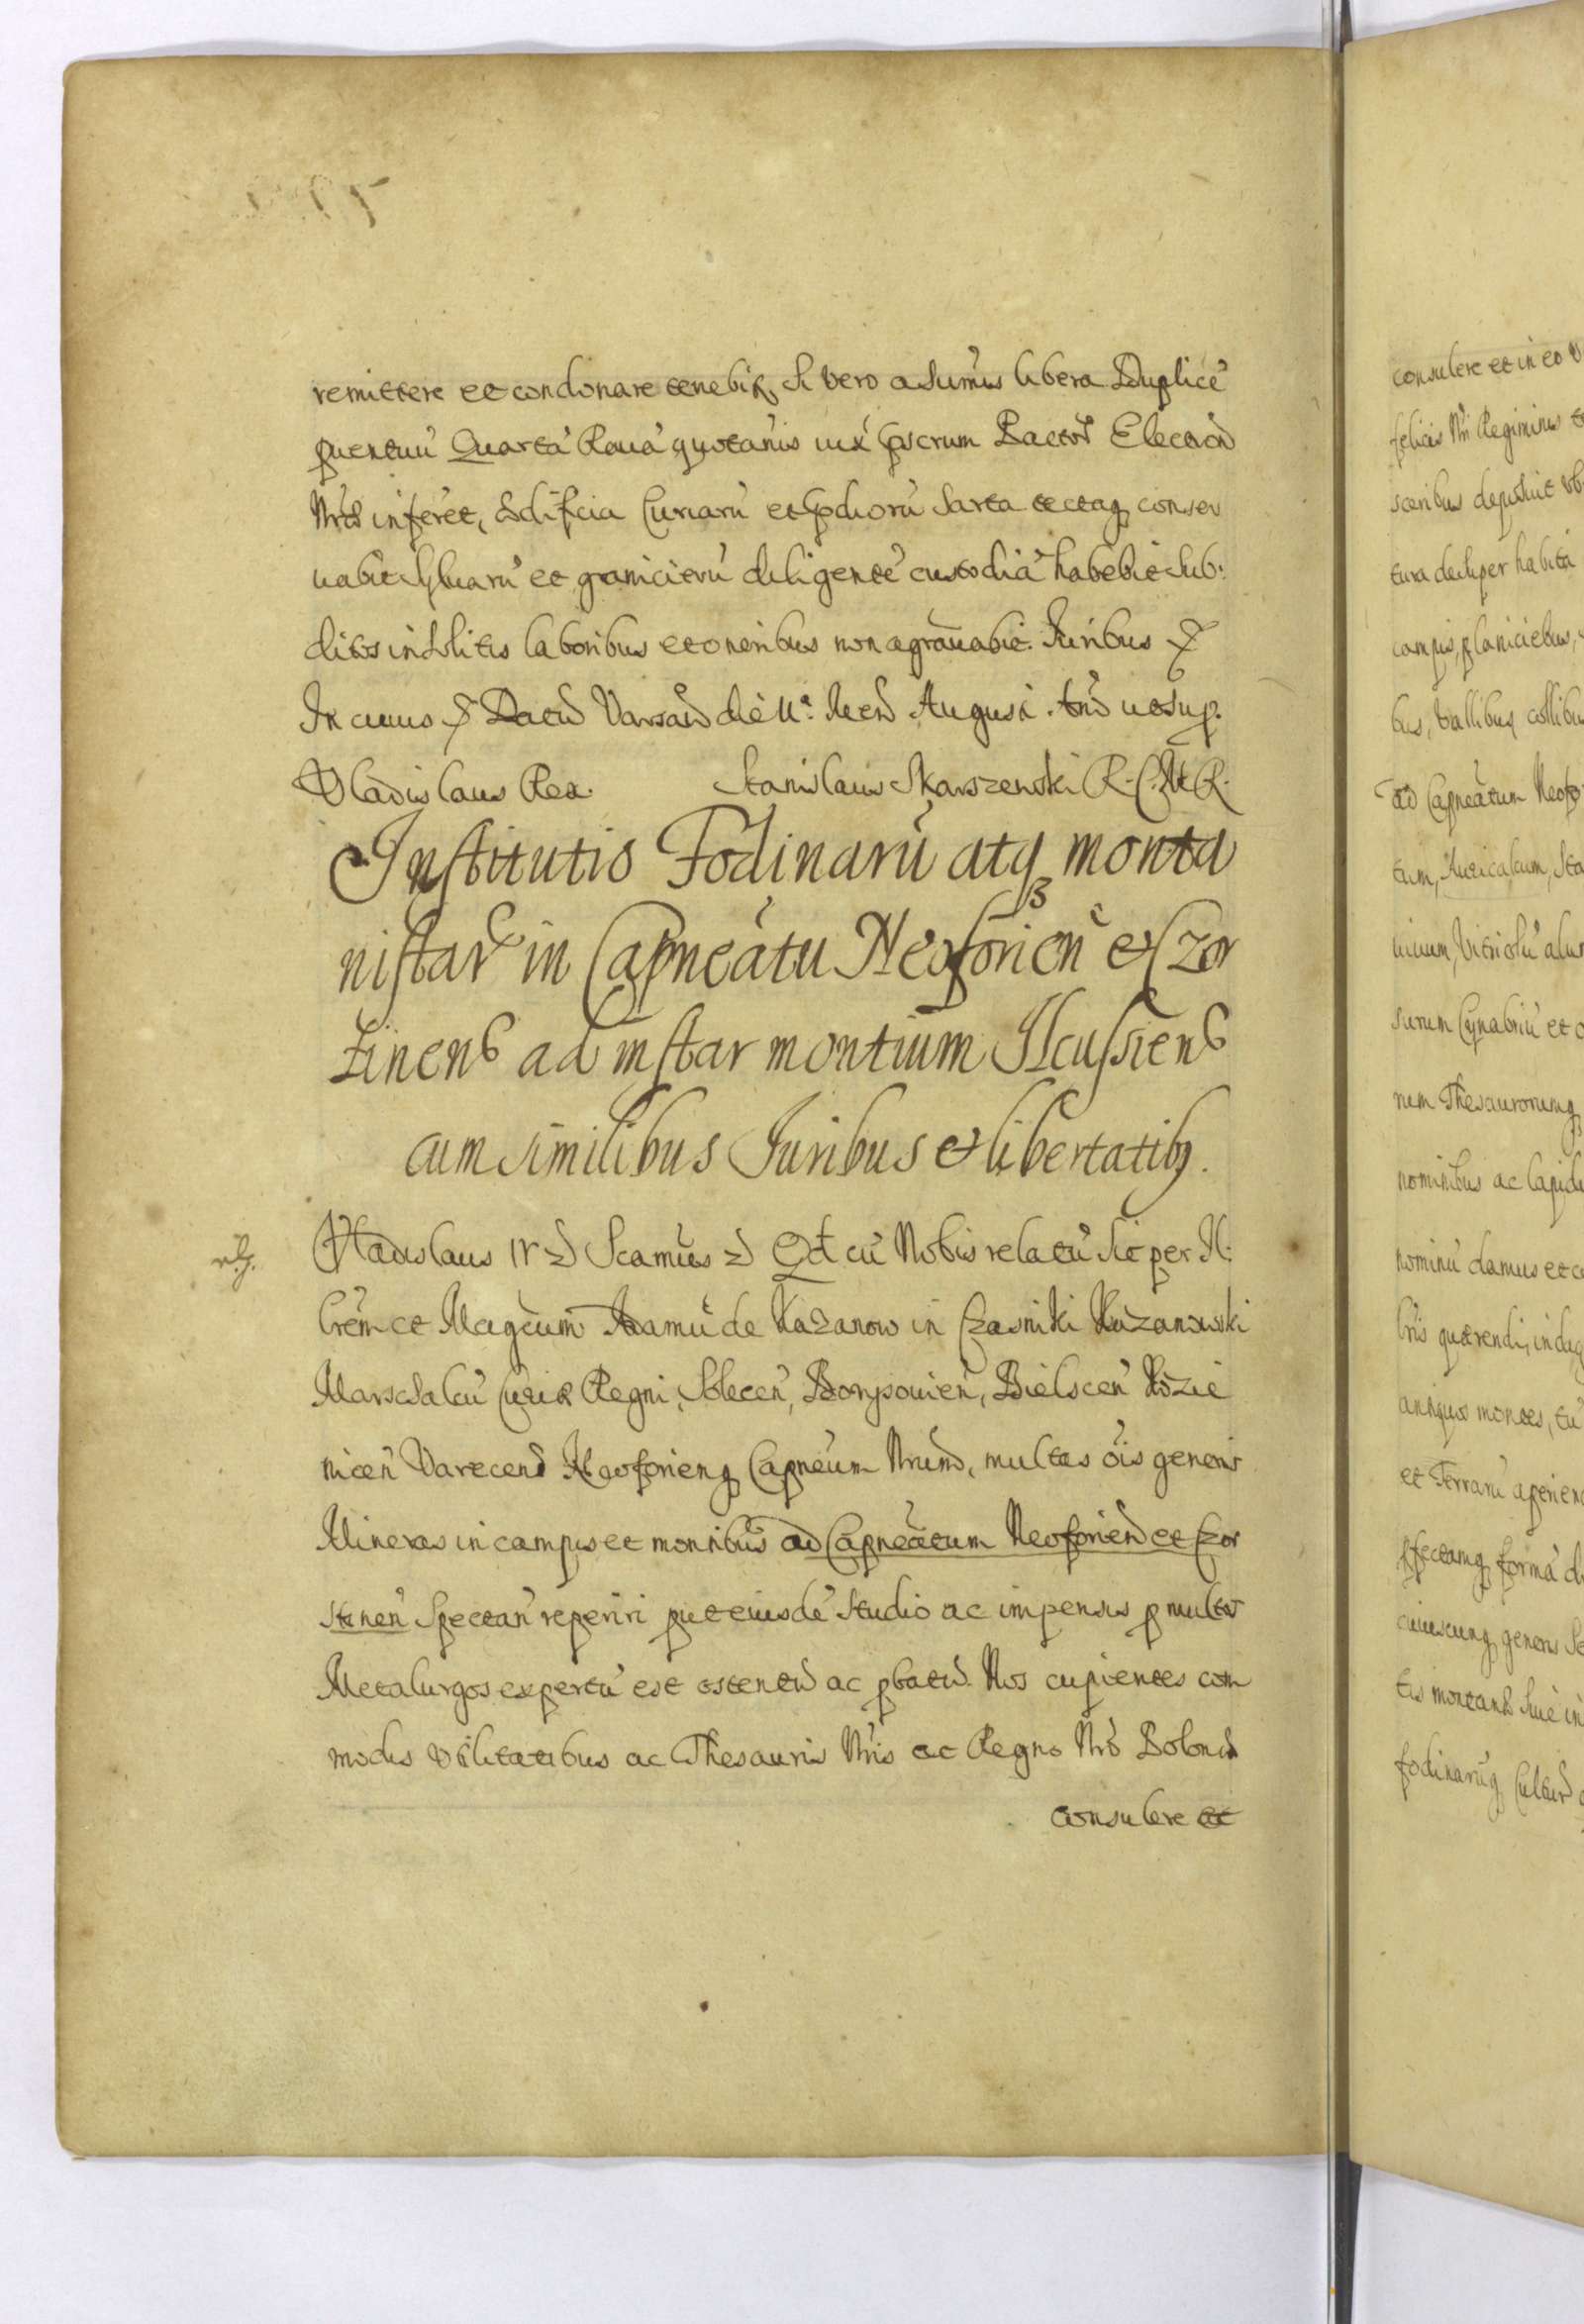 remittere et condonare tenebit, Si vero a Sumis libera Duplicẽ
puentuũ Quartã Rauã quotãnis iux̃ pscrum Pactor Election
Nrã inferet, Ædificia Curiarũ et prdiorũ Sarta tectaq conser
uabit Syluarũ et granicierũ diligentẽ custodiã habebit Sub:
ditos insolitis laboribus et oneribus non agrauabit. Iuribus &
In cuius & Datũ Varsaũ die 11ª. Men Augusti. Anõ ut sup.
Vladislaus Rex. Stanislaus Skarszewski R. C. Mt. R.
Institutio Fodinarũ atq3 monta
nistar in Capneatu Neoforien et Czor
stinens ad instar montium Ilcussiens
cum similibus Iuribus et libertatib9.
Vladislaus IV Scimus Qd cũ Nobis relatũ Sit per Il:
lrẽm et Magcum Adamũ de Kazanow in Czasniki Kazanowski
Marschalcũ Curiæ Regni, Solecen, Borysouien, Bielscen Kozie
nicen Varecens Neofforienq Capneum Nrum, multas õis generis
Mineras in campis et montibus ad Capneatum Neoforien et Czor
stinen Spectan reperiri put eiusdẽ Studio ac impensis p multos
Metalurgos expertũ est ostentũ ac pbatũ. Nos cupientes com
modis Vtilitatibus ac Thesauris Nris ac Regno Nro Poloniæ
consulere et
consulere et in eo
felicis Nri Regiminis
sceribus deposuit
tura desuper habita
campis, planiciebus,
bus, Vallibus collibus
ad Capneatum Neofo
tum, Auricalcum, Sta
uiuum, Vitriolũ alu
surum Cynabriũ et
rum Thesaurorumq
nominibus ac lapid
nominũ damus et c
lris quærendi, indag
antiquos montes, tũ
et Terrarũ aperien
pfectamq formã d
cuiuscunq generis Se
tis montanis Siue in
fodinarũq Culturæ